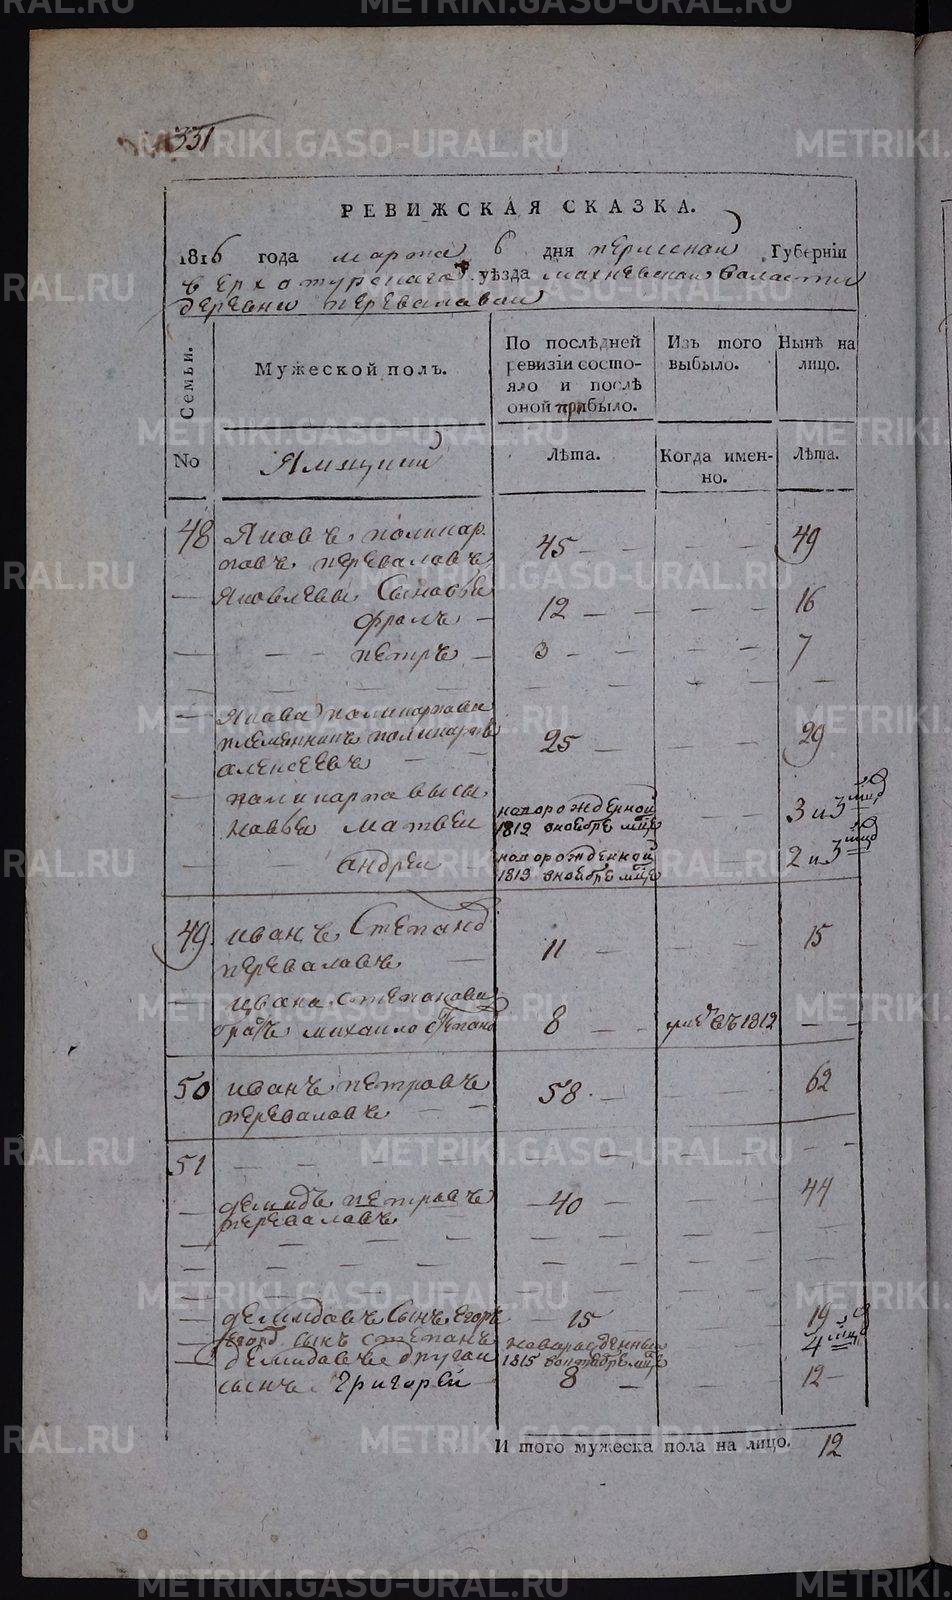 331
РЕВИЖСКАЯ СКАЗКА.
1816 года марта 6 дня пермской Губерніи
верхотурскаго уѣзда махневской валасти
деревни перевалавой
Семьи.
Мужеской полъ.
По послѣдней ревизіи состояло и послѣ оной прибыло.
Изъ того выбыло.
Нынѣ на лицо.
No
Ямщики
Лѣта.
Когда именно.
Лѣта.
48 Яковъ поликар
повъ переваловъ 45 — — — — 49
— Яковлевы Сыновье
фролъ — 12 — — — — 16
— — — петръ — 3 — — — — 7
— Якова поликарпова
племянникъ поликарпъ
алексеевъ — — 25 — — — 29
— поликарпавы сы
новье матвеи новорожденной
1812 вноебре мце — — 3 и 3 мцд
— — андреи новорожденной
1813 вноебре мце — — 2 и 3 мцд
49 иванъ Степано
перевалавъ — 11 — — — 15
— ивана степанова
братъ михаило степано 8 — — умре въ 1812 — —
50 иванъ петровъ
перевалавъ — — 58 — — — 62
51 — — — —
— демидъ петровъ
перевалавъ — 40 — — — 44
— демидовъ сынъ Егоръ 15 — — 19
Егоро сынъ степанъ новорожденны
1815 мце — — 4 мцд
— демидовъ другаи
сынъ Григорей — 8 — — — 12 —
И того мужеска пола на лицо. 12
METRIKI.GASO-URAL.RU